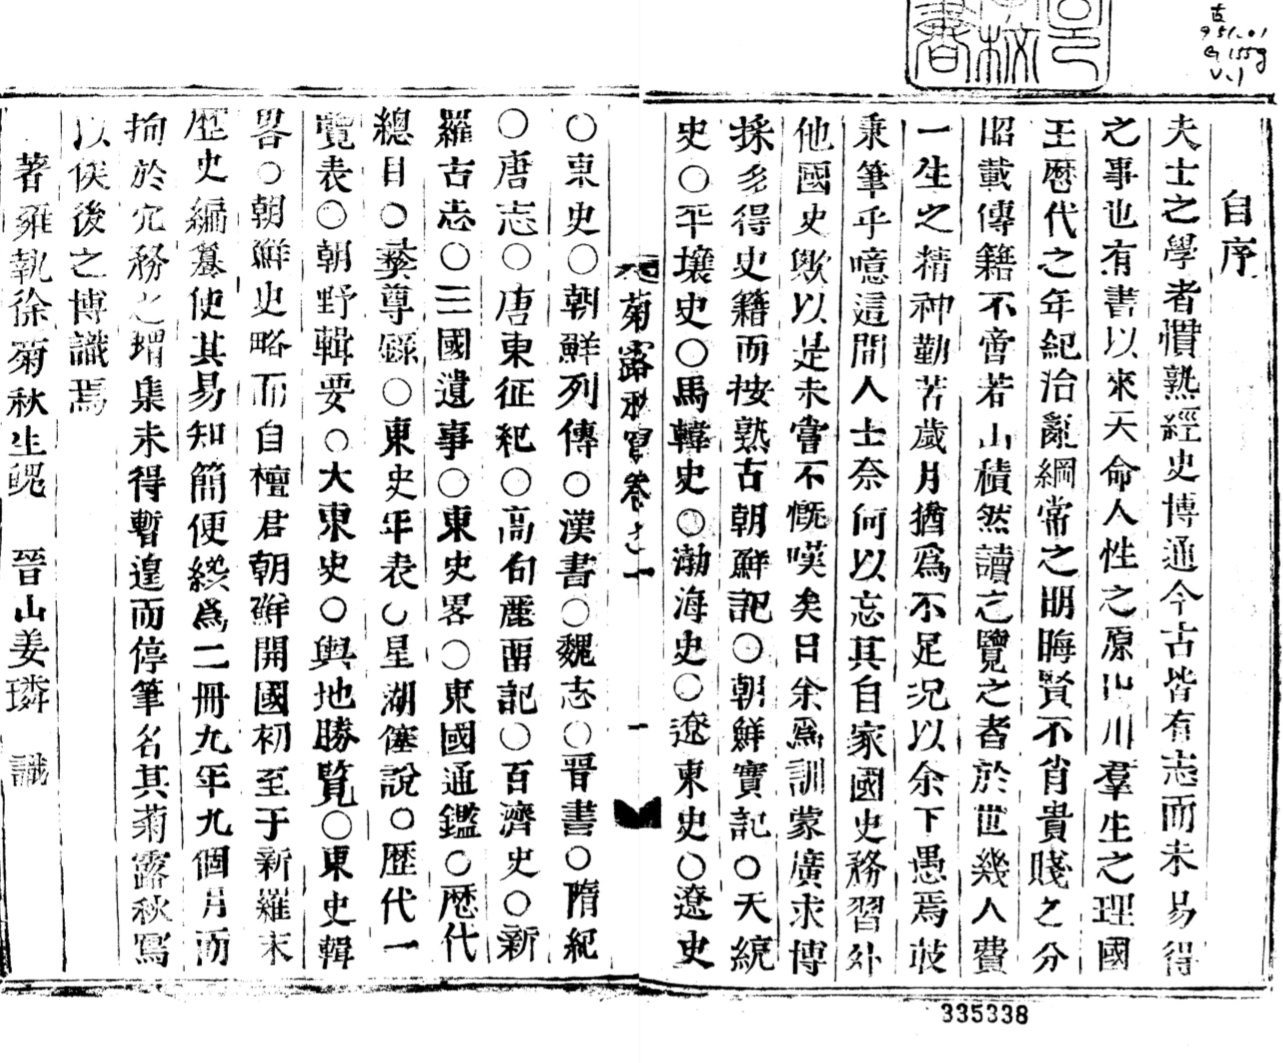 古
951.01
G155g
V.1
自序
夫士之學者慣熟經史博通今古皆有志而未易得
之事也有書以來天命人性之原山川羣生之理國
王曆代之年紀治亂綱常之明晦賢不肖貴賤之分
昭載傳籍不啻若山積然讀之覽之者於世幾人費
一生之精神勤苦歲月猶爲不足況以余下愚焉敢
秉筆乎噫這間人士奈何以忘其自家國史務習外
他國史歟以是未嘗不慨嘆矣日余爲訓蒙廣求博
採多得史籍而按熟古朝鮮記〇朝鮮實記〇天統
史〇平壤史〇馬韓史〇渤海史〇遼東史〇遼史
菊露秋寫卷之一
一
〇東史〇朝鮮列傳〇漢書〇魏志〇晉書〇隋紀
〇唐志〇唐東征紀〇高句麗畱記〇百濟史〇新
羅古志〇三國遺事〇東史畧〇東國通鑑〇歷代
總目〇彛尊錄〇東史年表〇星湖僿說〇歷代一
覽表〇朝野輯要〇大東史〇輿地勝覽〇東史輯
畧〇朝鮮史略而自檀君朝鮮開國初至于新羅末
歷史編纂使其易知簡便總爲二冊九年九個月而
拘於冗務之瑣集未得暫遑而停筆名其菊露秋寫
以俟後之博識焉
著雍執徐菊秋生魄 晉山姜璘 識
335338